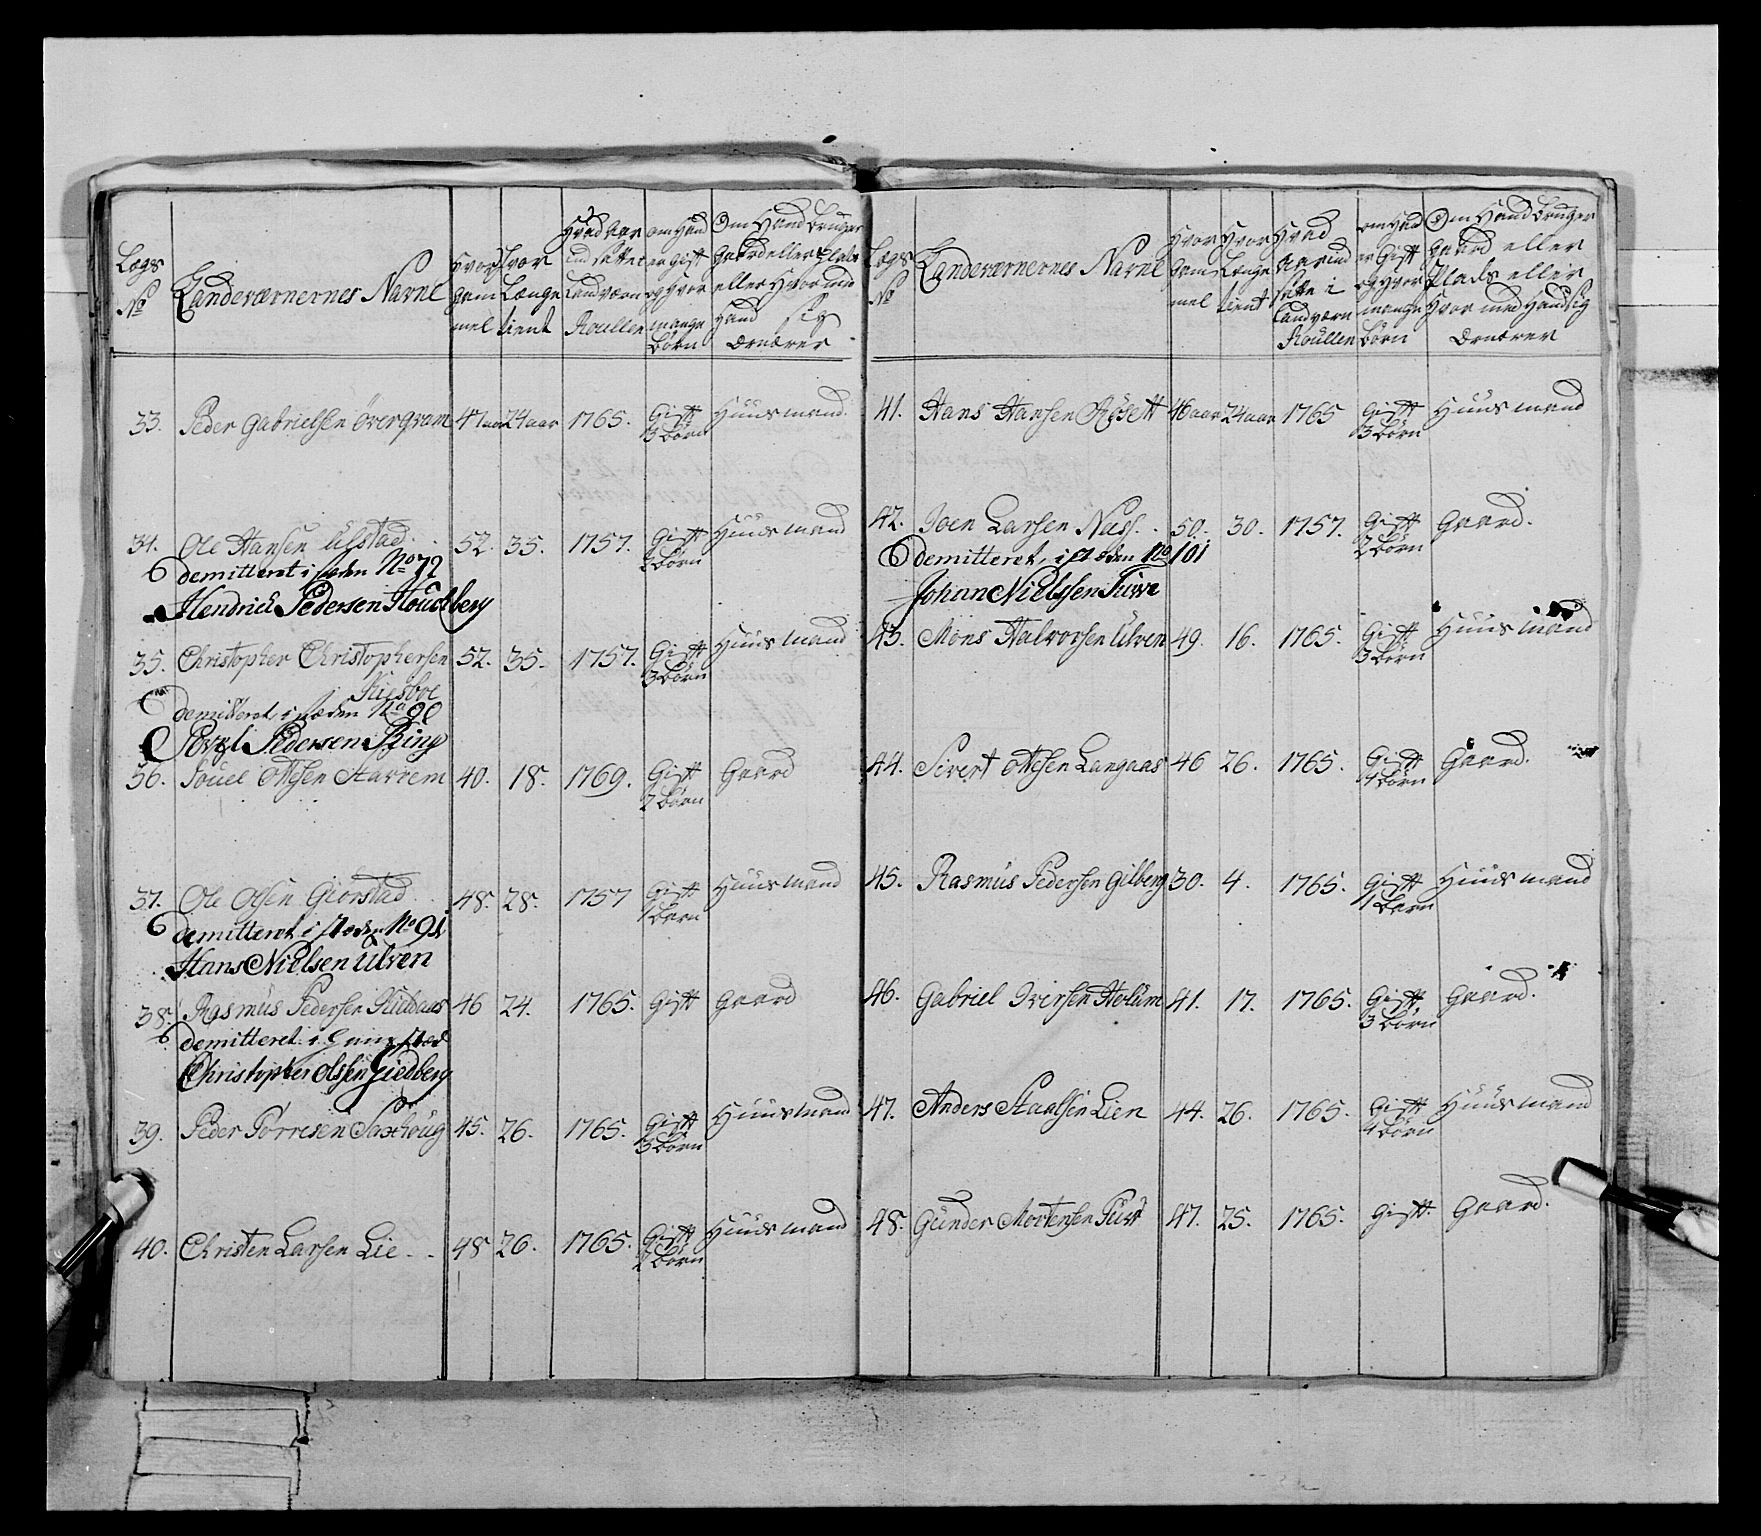 Lægs
No
Landeværnernes Navne
Hvor
gam
mel
Hvor
Længe
tient
Hvad aar
ind satte
Landværn
Roullen
om Hand
er gift
og hvor
mange
børn
Om Hand bruger
Gaard eller Plads
eller Hvor med
Hand sig
Ernærer
33. Peder Gabrielsen Øvergram 47 aar 24 aar 1765. Gift Huusmand.
3 børn
34. Ole Hansen Ulstad. 52. 35. 1757. Gift Huusmand
2 børn
demitteret i steden No 72
Hendrick Pedersen Houdberg
35. Christopher Christophersen 52. 35. 1757. Gift Huusmand
3 børn
Kiesboe
demitteret, i stæden No 90
Povel Pedersen Ring
36. Jouel Olsen Starrem 40. 18. 1769. Gift Gaard
2 børn
37. Ole Olsen Giorstad 48. 28. 1757 Gift Huusmand
1 barn
demitteret i steden No 91
Hans Nielsen Ulven
38. Rasmus Pedersen 46 24. 1765. Gift Gaard
demitteret i
Christopher Olsen Giedberg
39. Peder Pørresen Saxhoug 45. 26. 1765. Gift Huusmand
3 børn
40. Christen Larsen Lie 48 26. 1765. Gift Huusmand
2 børn
Lægs
No
Landeværnernes Navne
Hvor
gam
mel
Hvor
Længe
tient
Hvad
aar ind
satte i
Landværn
Roullen
om Hand
er Gift
og hvor
mange
børn
Om Hand bruger
Gaard eller
Plads eller
Hvor med Hand sig
Ernærer
41. Hans Hansen Røsett 46 aar 24 aar 1765 Gift Huusmand
3 børn
42. Joen Larsen Næss. 50. 30. 1757. Gift Gaard.
2 børn
demitteret, i stæden No 101
Johan Nielssen Tuva
43. Mons Halvorsen Ulven 49. 16. 1765. Gift Huusmand
3 børn
44. Sivert Olsen Langaas 46 26. 1765. Gift Gaard.
4 børn
45. Rasmus Pedersen Gilberg 30. 4. 1765. Gift Huusmand
1 barn
46. Gabriel Iversen Holum 41. 17. 1765. Gift Gaard.
3 børn
47. Anders Staalsen Lien 44. 26. 1765. Gift Huusmand
4 børn
48. Gunder Mortensen 47. 25. 1765. Gift Gaard.